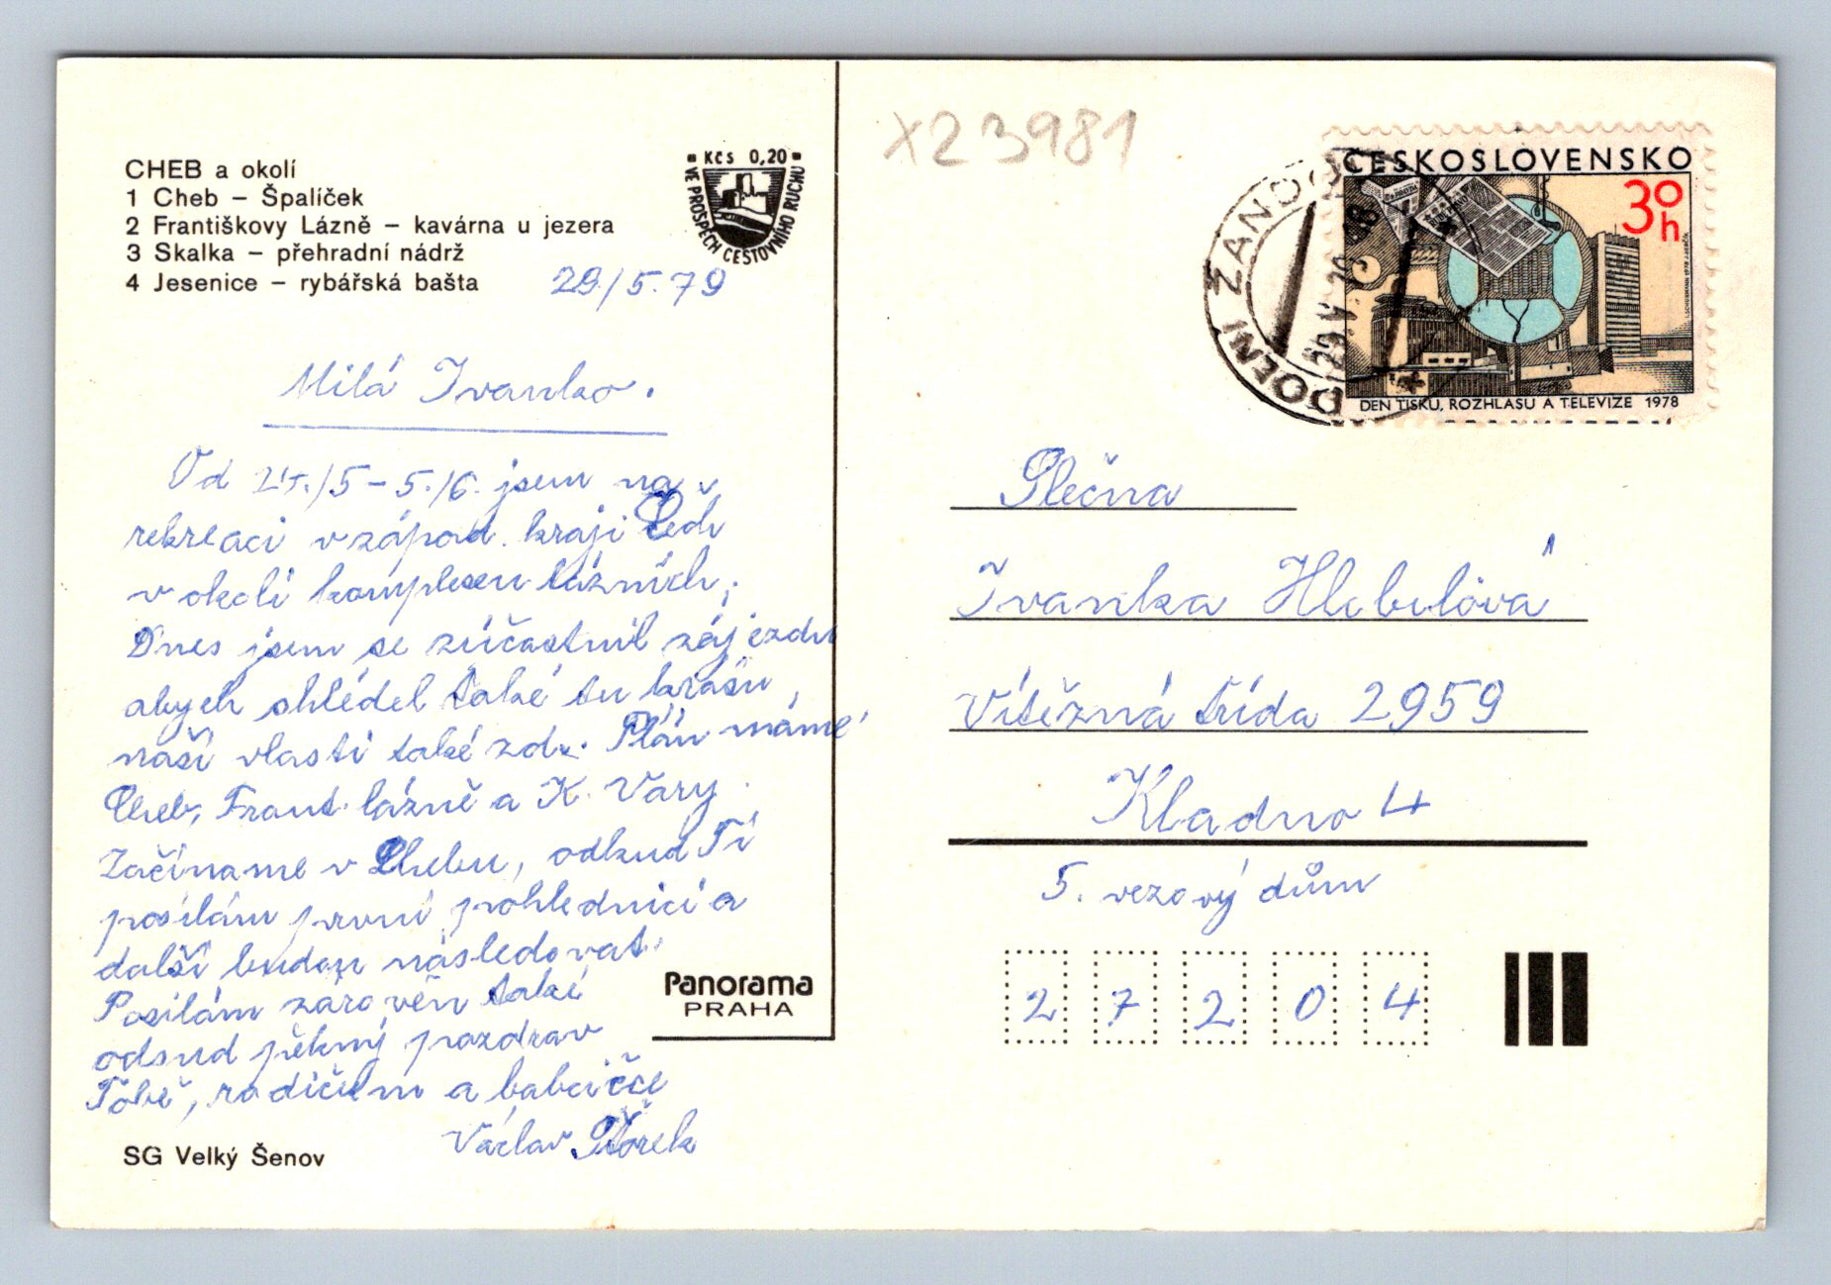 CHEB a okolí
1 Cheb – Špalíček
2 Františkovy Lázně – kavárna u jezera
3 Skalka – přehradní nádrž
4 Jesenice – rybářská bašta
KČS 0,20
VE PROSPĚCH CESTOVNÍHO RUCHU
29./5.79
Milá Ivanko.
Od 25./5 – 5./6. jsem na
rekreaci v západ. kraji Čech
v okolí komplexu lázních,
Dnes jsem se zúčastnil zájezdu
abych shlédel také tu krásu
naší vlasti také zde. Plán máme
Cheb, Frant. lázně a K. Vary.
Začíname v Chebu, odkud Ti
posílám první pohlednici a
další budou následovat.
Posílám zárověn také
odsud pěkný pozdrav
Tobě, rodičům a babičce
Václav
SG Velký Šenov
Panorama
PRAHA
X23981
DOLNÍ ŽANDOV
ČESKOSLOVENSKO
30h
DEN TISKU, ROZHLASU A TELEVIZE 1978
Slečna
Ivanka Hlebelová
Vítězná třída 2959
Kladno 4
5. vezový dům
2 7 2 0 4